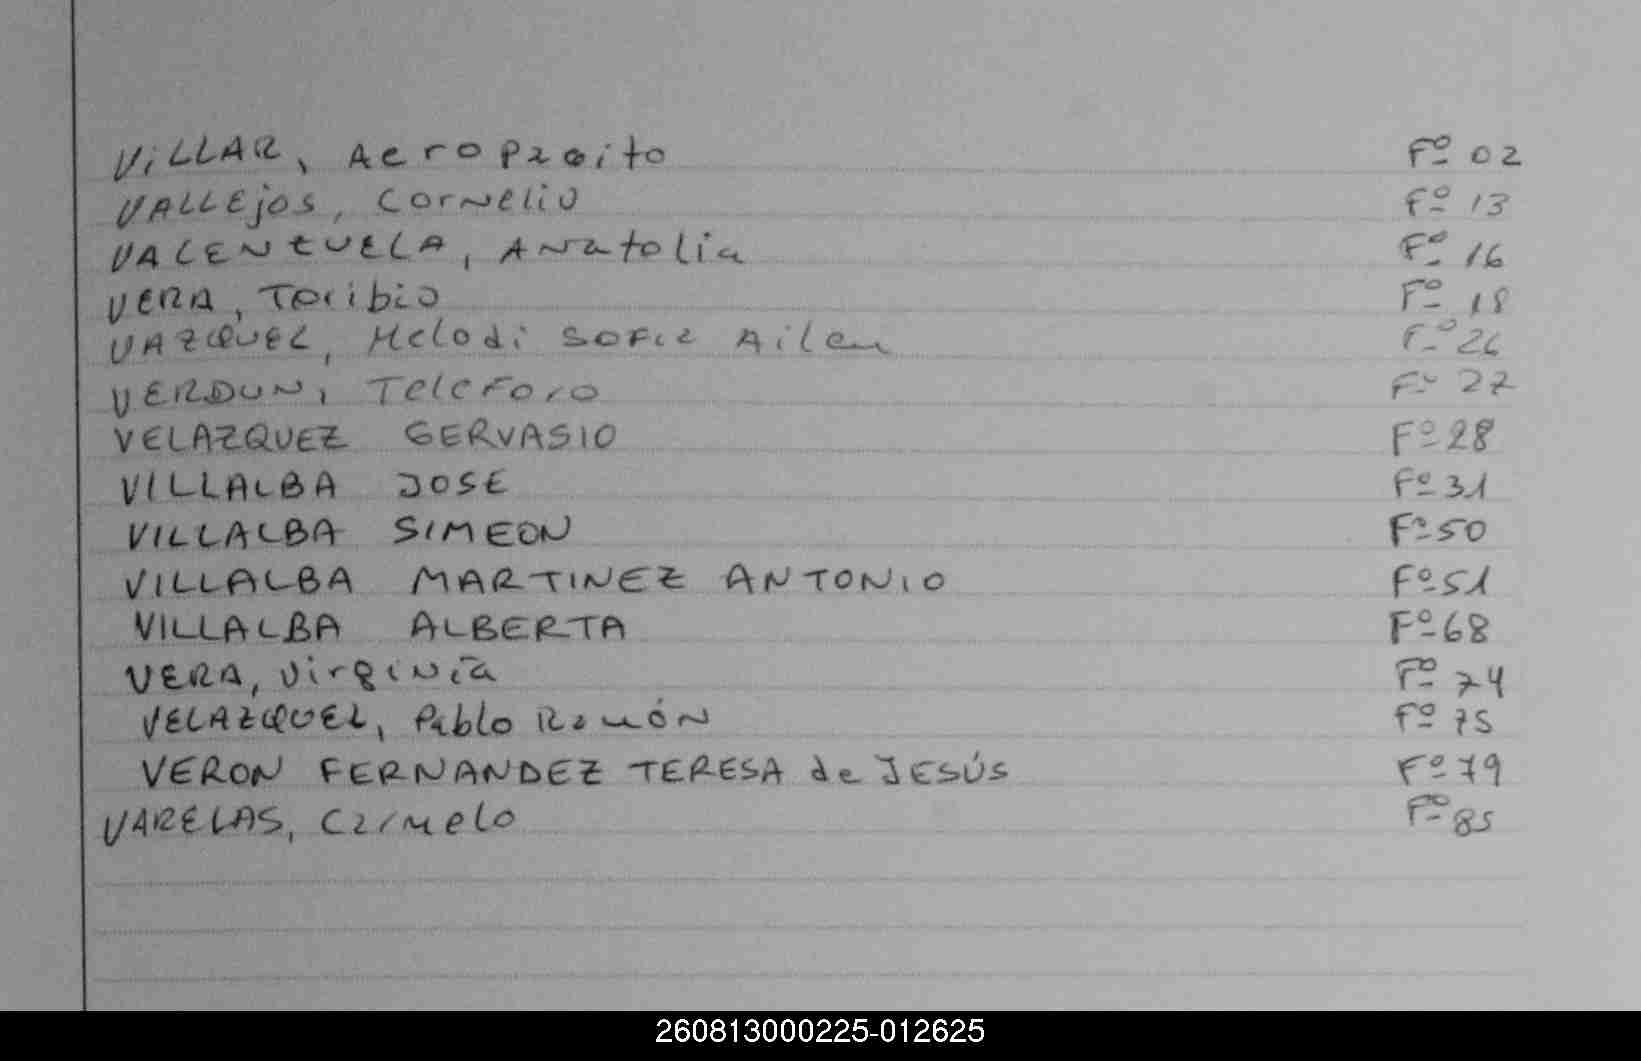 VILLAR, Aeropagito Fº 02
VALLEjOS, Cornelio Fº 13
VALENZUELA, Anatolia Fº 16
VERA, Toribio Fº 18
VAZQUEZ, Melodi Sofia Ailen Fº 26
VERDUN, Teleforo Fº 27
VELAZQUEZ GERVASIO Fº 28
VILLALBA JOSE Fº 31
VILLALBA SIMEON Fº 50
VILLALBA MARTINEZ ANTONIO Fº 51
VILLALBA ALBERTA Fº 68
VERA, Virginia Fº 74
VELAZQUEZ, Pablo Ramón Fº 75
VERON FERNANDEZ TERESA de JESÚS Fº 79
VARELAS, Carmelo Fº 85
260813000225-012625